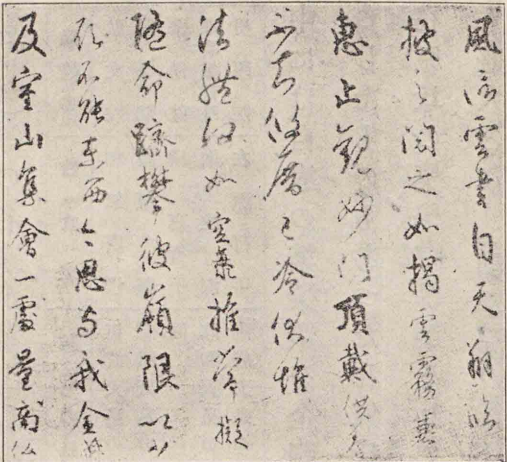 風信雲書自天翔臨
披之閲之如揭雲霧兼
惠止觀妙門頂戴供養
不知攸厝已冷伏惟
法體何如空海推常擬
隨命躋攀彼嶺限以少
願不能東西今思与我金蘭
及室山集會一處量商仏